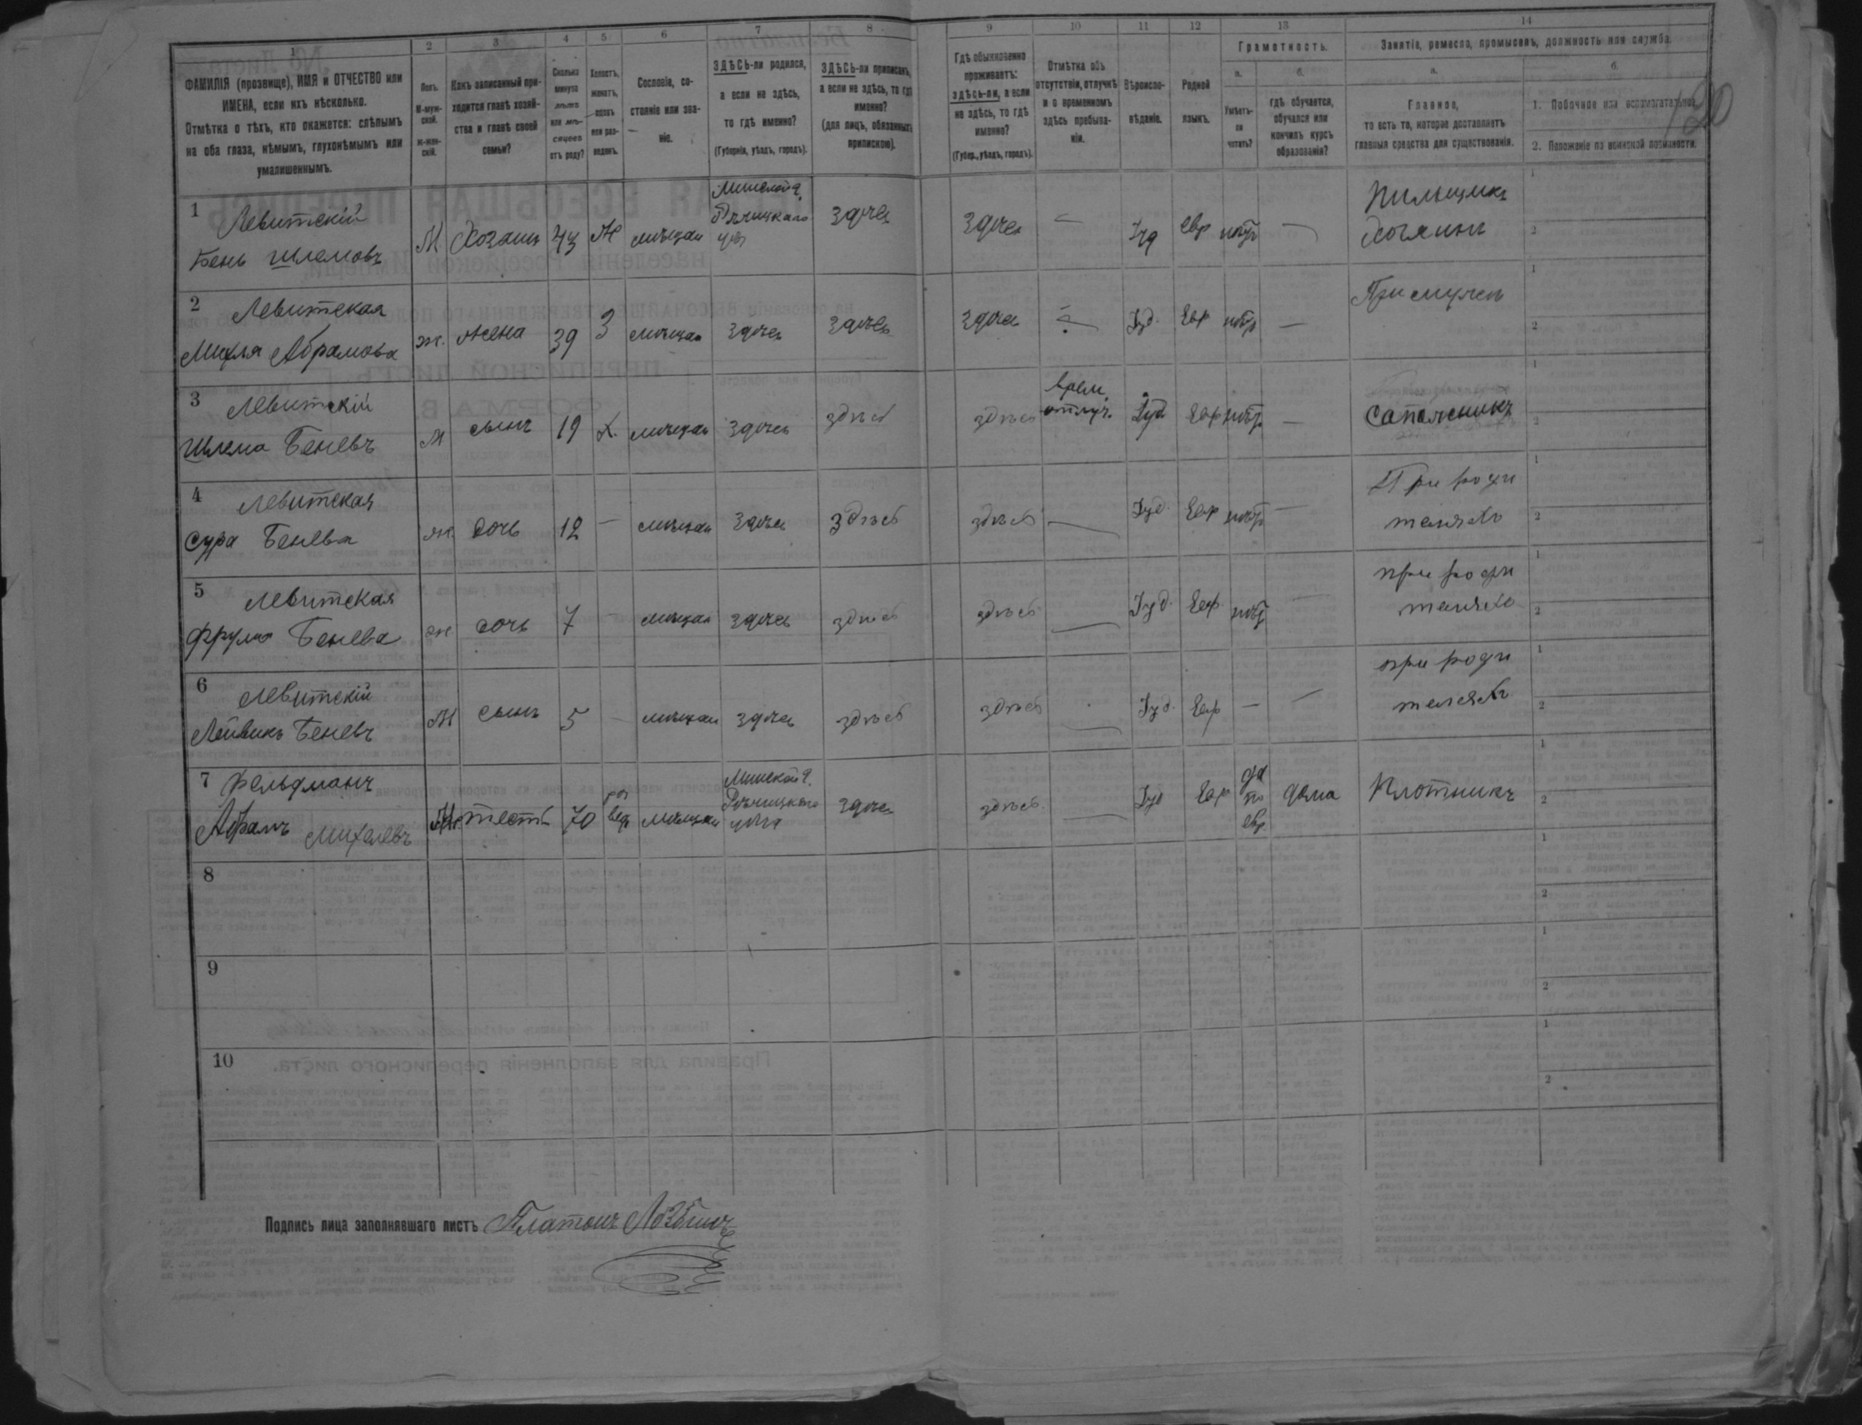 1 2 3 4 5 6 7 8 9 10 11 12 13 14
ФАМИЛІЯ (прозвище), ИМЯ и ОТЧЕСТВО или
ИМЕНА, если ихъ нѣсколько.
Отмѣтка о тѣхъ, кто окажется: слѣпымъ
на оба глаза, нѣмымъ, глухонѣмымъ или
умалишеннымъ.
Полъ.
М-муж-
ской.
Ж-жен-
скій.
Какъ записанный при-
ходится главѣ хозяй-
ства и главѣ своей
семьи?
Сколько
минуло
лѣтъ
или мѣ-
сяцевъ
отъ роду?
Холостъ,
женатъ,
вдовъ
или раз-
веденъ.
Сословіе, со-
стояніе или зва-
ніе.
ЗДѢСЬ-ли родился,
а если не здѣсь,
то гдѣ именно?
(Губернія, уѣздъ, городъ).
ЗДѢСЬ-ли приписанъ,
а если не здѣсь, то гдѣ
именно?
(для лицъ, обязанныхъ
припискою).
Гдѣ обыкновенно
проживаетъ:
здѣсь-ли, а если
не здѣсь, то гдѣ
именно?
(Губер., уѣздъ, городъ).
Отмѣтка объ
отсутствіи, отлучкѣ
и о временномъ
здѣсь пребыва-
ніи.
Вѣроиспо-
вѣданіе.
Родной
языкъ.
Грамотность.
а.
Умѣетъ-
ли
читать?
б.
гдѣ обучается,
обучался или
кончилъ курсъ
образованія?
Занятіе, ремесло, промыселъ, должность или служба.
а.
Главное,
то есть то, которое доставляетъ
главныя средства для существованія.
б.
1. Побочное или вспомогательное.
2. Положеніе по воинской повинности.
1 Левитскій
Бень Шлемовъ
М Хозяинъ 43 Ж мѣщан
Минской г.
Рѣчицкаго
уѣз
здѣсь здѣсь — Іуд Евр нѣт —
Пильщикъ
хозяинъ
2 Левитская
Михля Абрамова
ж. жена 39 З мѣщан здѣсь здѣсь здѣсь Іуд. Евр нѣт —
При мужѣ
3 Левитскій
Шлема Беневъ
м сынъ 19 Х. мѣщан здѣсь здѣсь здѣсь
врем.
отлуч.
Іуд Евр нѣт —
Сапожникъ
4 Левитская
Сура Бенева
ж. дочь 12 — мѣщан здѣсь здѣсь здѣсь — Іуд. Евр нѣт —
При роди
теляхъ
5 Левитская
Фрума Бенева
ж дочь 7 — мѣщан здѣсь здѣсь здѣсь — Іуд. Евр. нѣт —
при роди
теляхъ
6 Левитскій
Лейвикъ Беневъ
М сынъ 5 — мѣщан здѣсь здѣсь здѣсь — Іуд. Евр — —
при роди
теляхъ
7 Фельдманъ
Абрамъ Михелевъ
М тесть 70 мѣщан
Минской г.
Рѣчицкаго
уѣзд
здѣсь здѣсь — Іуд Евр
да
по
евр.
дома Плотникъ
8
9
10
Подпись лица заполнявшаго листъ Платонъ